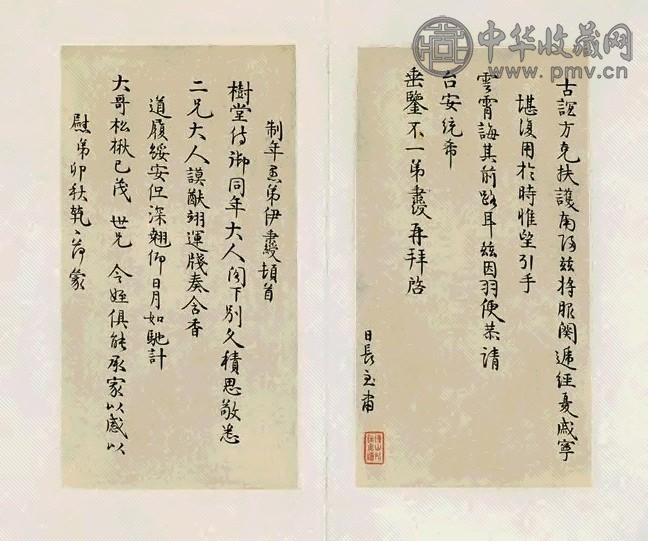 制年愚弟伊頓首
樹堂侍御同年大人阁下别久積思敬悉
二兄大人謨猷翊運牋奏含香
道履綏安但深翹仰日月如馳計
大哥松楸已茂 世兄 令姪俱能承家以慰以
慰弟卯秋荷蒙
古誼方克扶護南歸茲將服闋遞經憂戚寧
堪復用於時惟望引手
雲霄誨其前路耳茲因羽便恭請
台安統希
垂鑒不一弟再拜啓
日長至肅
中华收藏网
www.pmv.cn